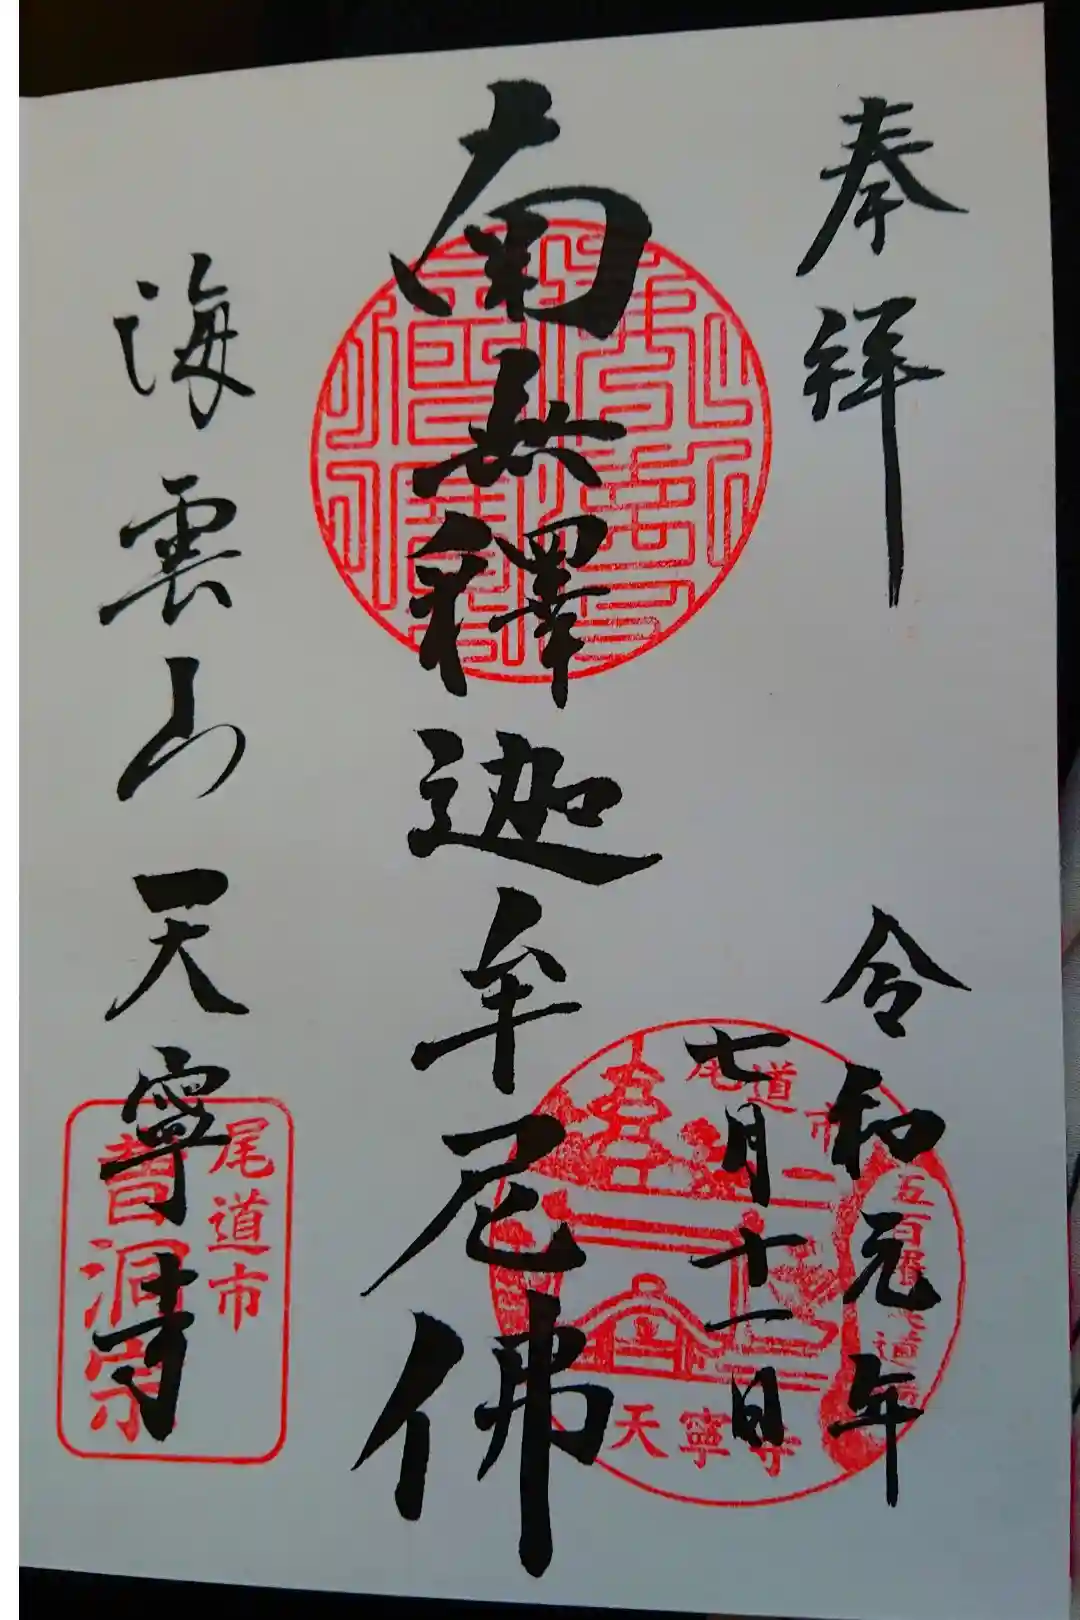 奉拝
令和元年
七月十一日
南無釋迦牟尼佛
海雲山天寧寺
尾道市
五百羅
天寧寺
尾道市
曹洞宗